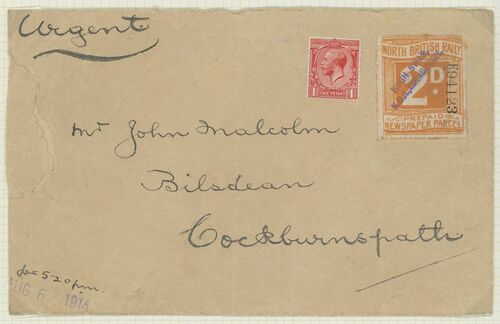 Urgent
ONE PENNY
NORTH BRITISH RAILY
2D.
E94123
PREPAID
NEWSPAPER PARCEL
Mr John Malcolm
Bilsdean
Cockburnspath
5-20 pm.
AUG 6 1914